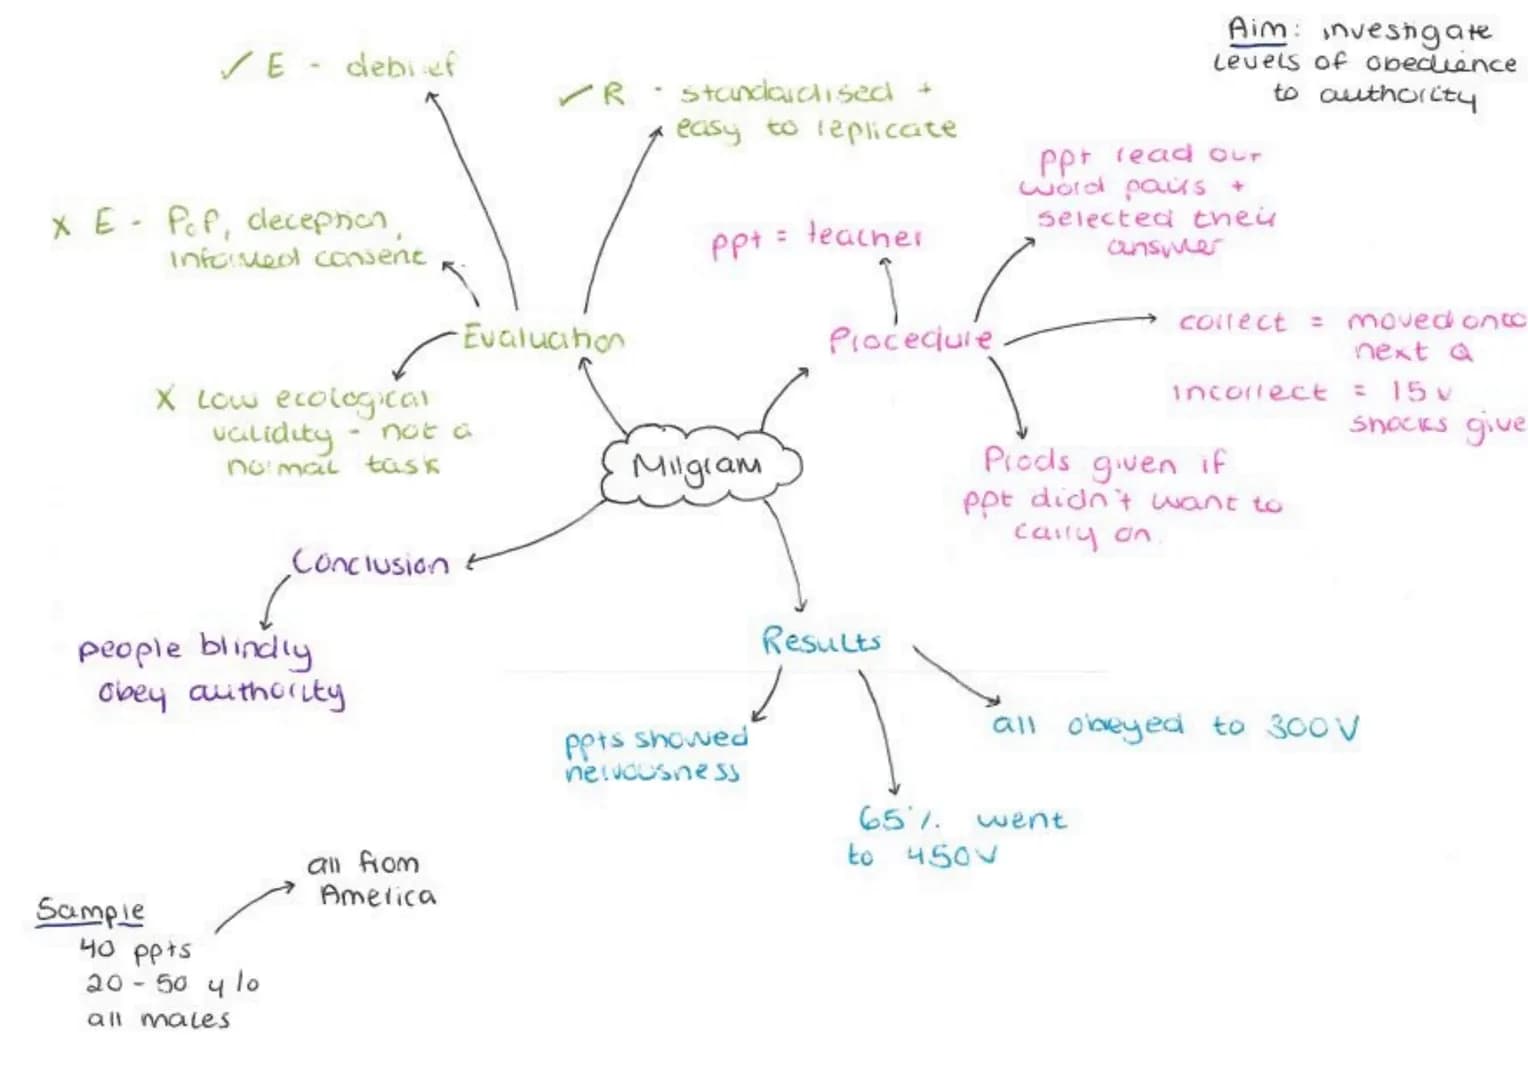 Aim: investigate
levels of obedience
to authority
✓ E - debrief
✓ R - standardised +
easy to replicate
X E - PcP, deception,
informed consent
Evaluation
X Low ecological
validity - not a
normal task
ppt = teacher
ppt read our
word pairs +
selected their
answer
Procedure
correct = moved onto
next Q
incorrect = 15v
shocks give
Prods given if
ppt didn't want to
carry on.
Milgram
Conclusion
people blindly
obey authority
Results
ppts showed
nervousness
65% went
to 450V
all obeyed to 300V
Sample
40 ppts
20 - 50 y/o
all males
all from
America